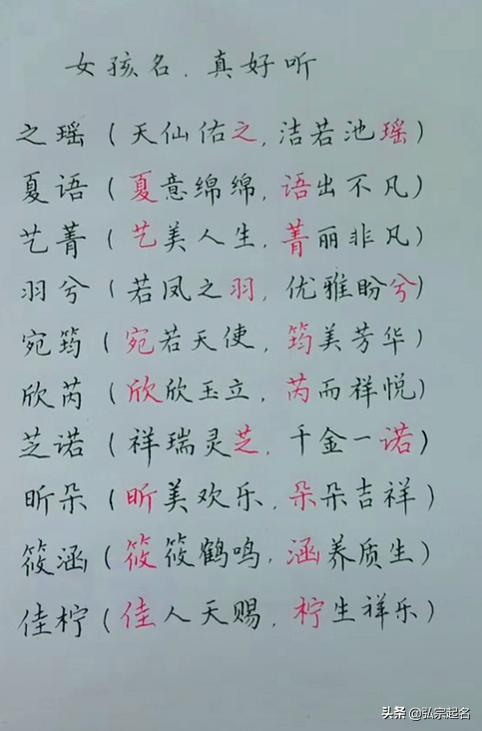 女孩名.真好听
之瑶（天仙佑之,洁若池瑶）
夏语（夏意绵绵,语出不凡）
艺菁（艺美人生,菁丽非凡）
羽兮（若凤之羽,优雅盼兮）
宛筠（宛若天使,筠美芳华）
欣芮（欣欣玉立,芮而祥悦）
芝诺（祥瑞灵芝,千金一诺）
昕朵（昕美欢乐,朵朵吉祥）
筱涵（筱筱鹤鸣,涵养质生）
佳柠（佳人天赐,柠生祥乐）
头条 @弘宗起名